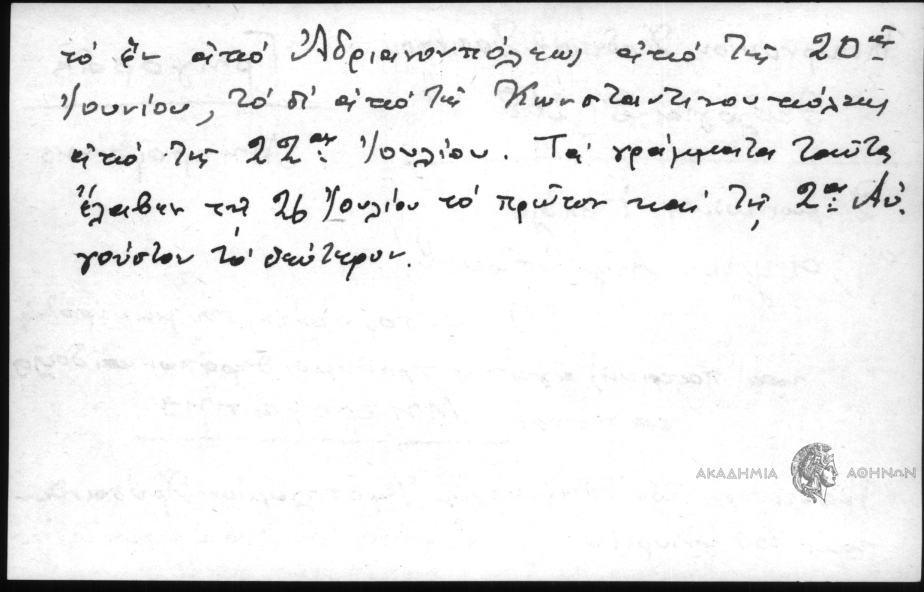 τό ἓν ἀπό Ἀδριανουπόλεως ἀπό τῆς 20ῆς
Ἰουνίου, τό δέ ἀπό τῆς Κωνσταντινουπόλεως
ἀπό τῆς 22ας Ἰουλίου. Τά γράμματα ταῦτα
ἔλαβεν τῇ 26 Ἰουλίου τό πρῶτον καί τῇ 2ᾳ Αὐ-
γούστου τό δεύτερον.
ΑΚΑΔΗΜΙΑ ΑΘΗΝΩΝ